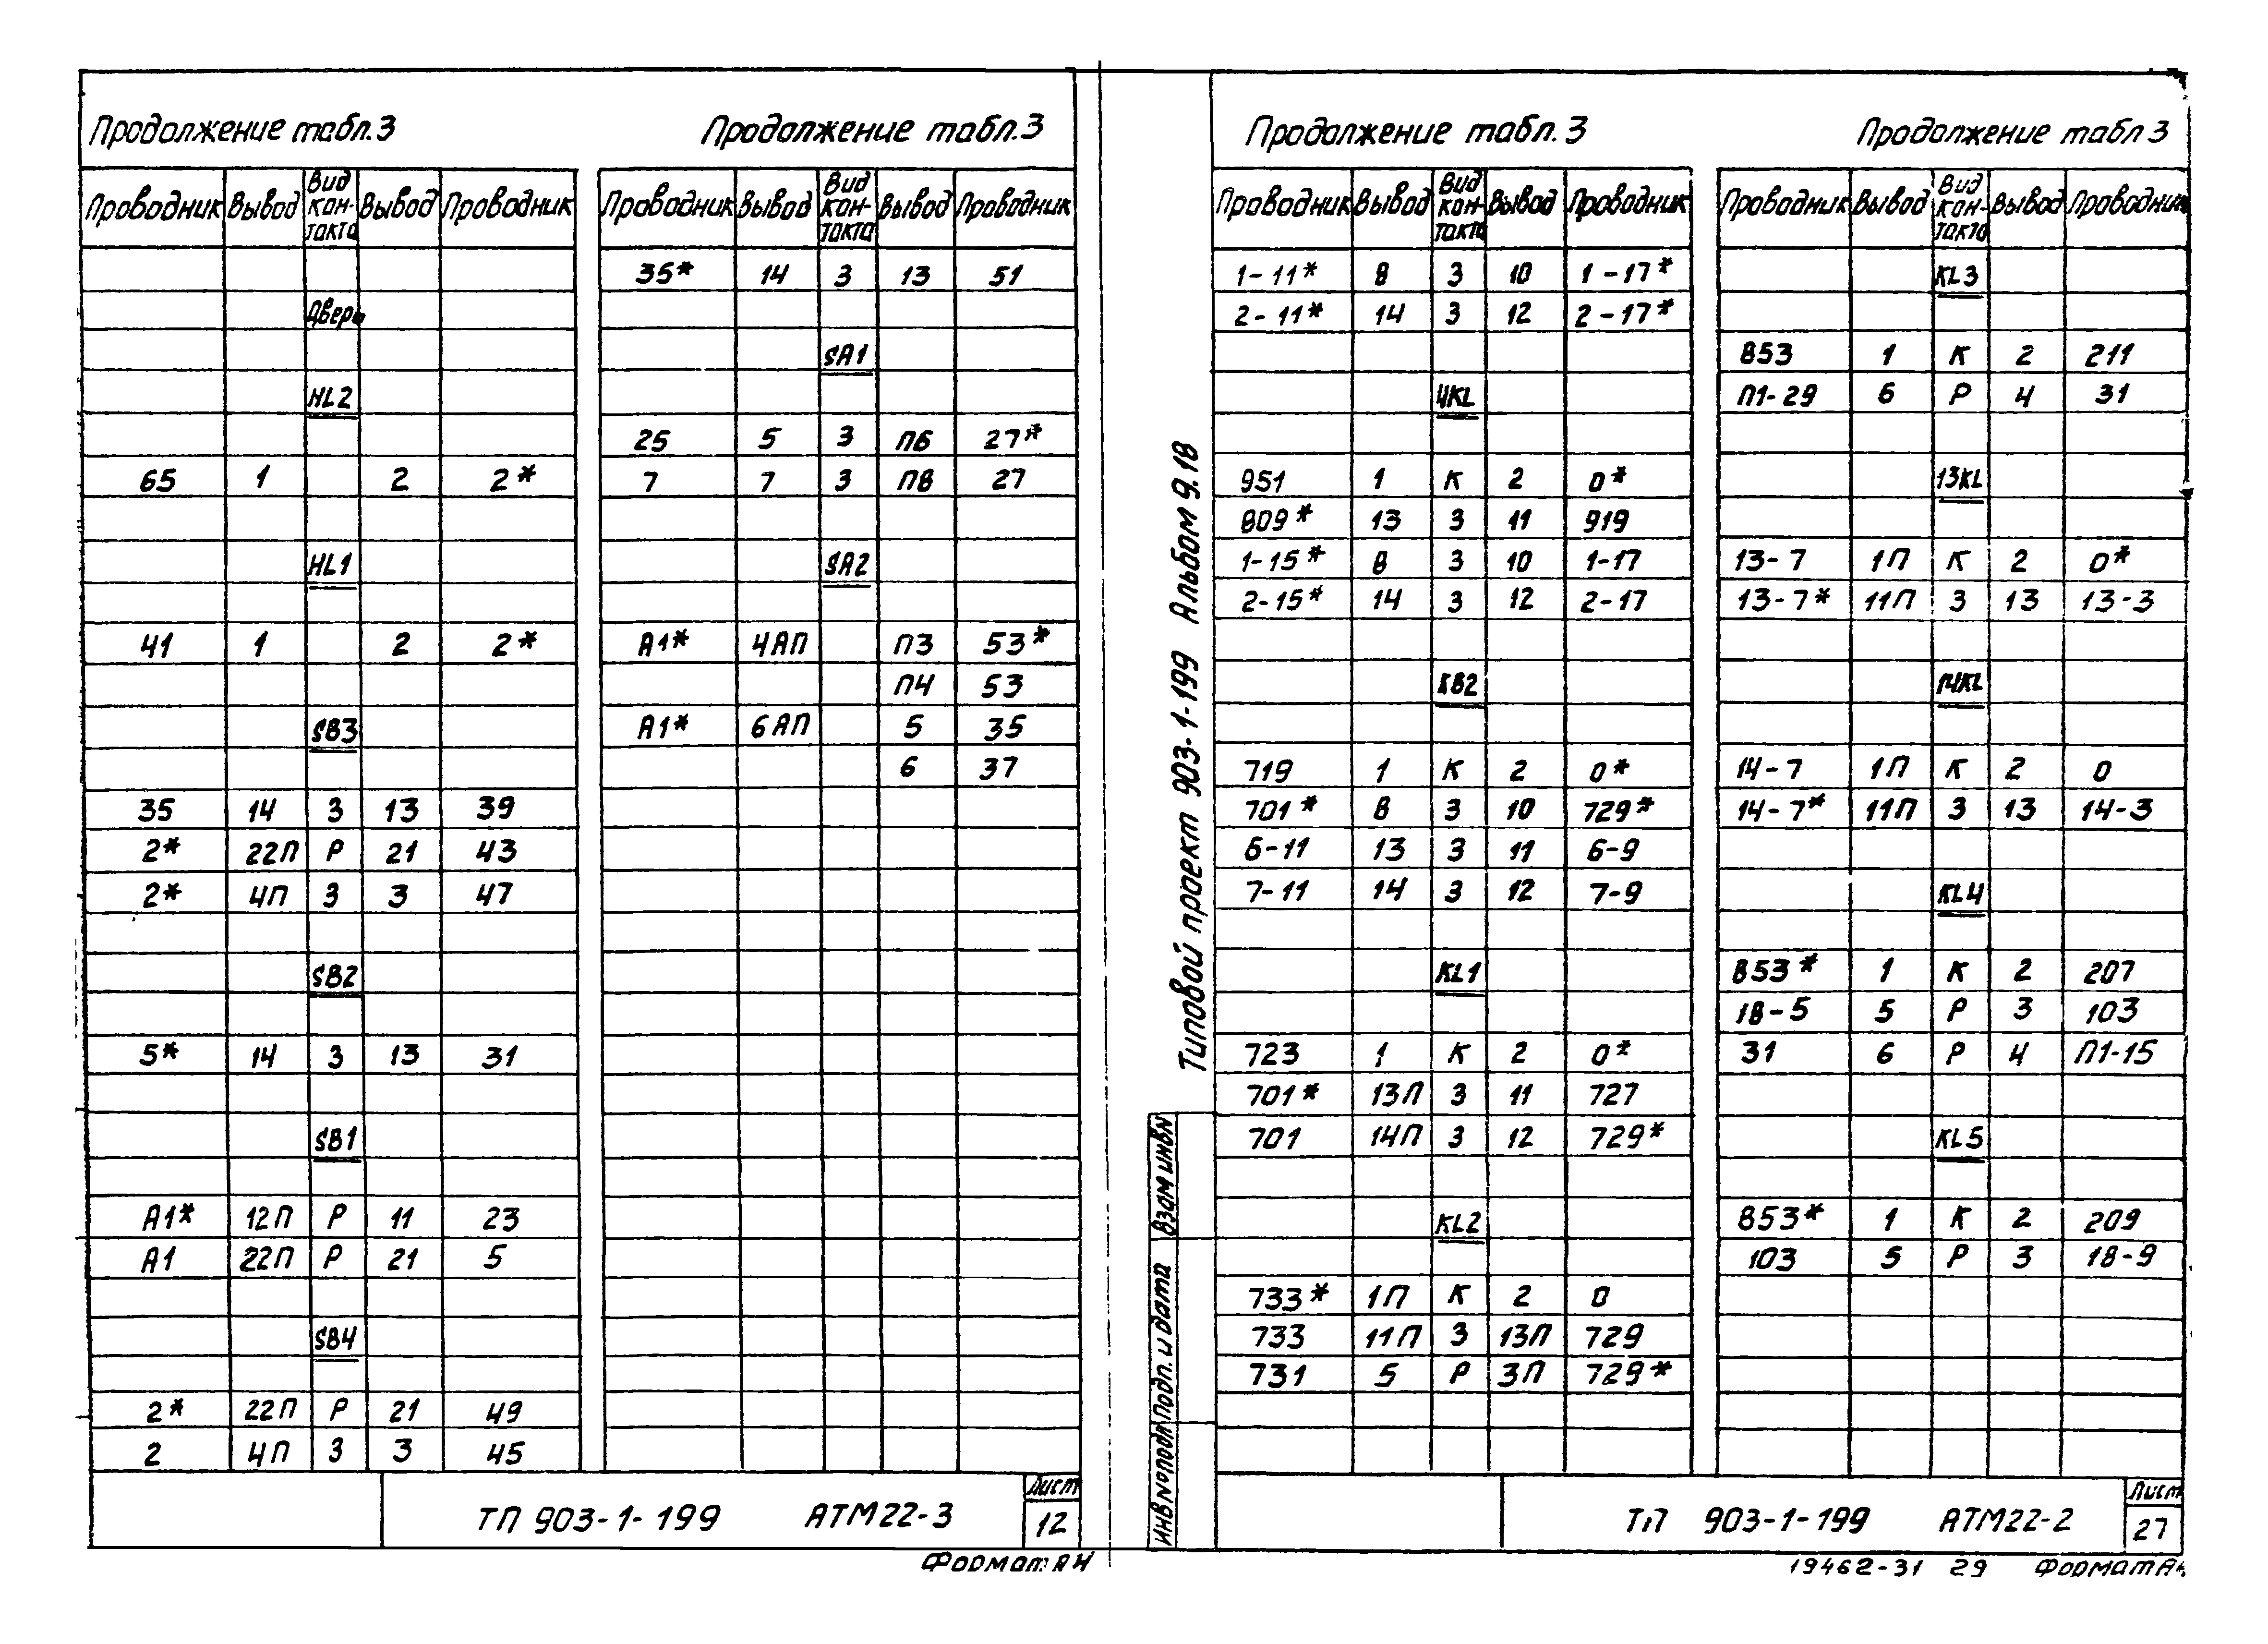 Продолжение табл.3
Проводник Вывод Вид кон-такта Вывод Проводник
Дверь
HL2
65 1 2 2*
HL1
41 1 2 2*
SB3
35 14 З 13 39
2* 22П Р 21 43
2* 4П З 3 47
SB2
5* 14 З 13 31
SB1
А1* 12П Р 11 23
А1 22П Р 21 5
SB4
2* 22П Р 21 49
2 4П З 3 45
Продолжение табл.3
Проводник Вывод Вид кон-такта Вывод Проводник
35* 14 З 13 51
SA1
25 5 З П6 27*
7 7 З П8 27
SA2
А1* 4АП П3 53*
П4 53
А1* 6АП 5 35
6 37
ТП 903-1-199 АТМ22-3
Лист
12
Формат А4
Типовой проект 903-1-199 Альбом 9.18
Взам инв N
Подп. и дата
Инв N подл
Продолжение табл.3
Проводник Вывод Вид кон-такта Вывод Проводник
1-11* 8 З 10 1-17*
2-11* 14 З 12 2-17*
4KL
951 1 К 2 0*
809* 13 З 11 919
1-15* 8 З 10 1-17
2-15* 14 З 12 2-17
КВ2
719 1 К 2 0*
701* 8 З 10 729*
6-11 13 З 11 6-9
7-11 14 З 12 7-9
KL1
723 1 К 2 0*
701* 13П З 11 727
701 14П З 12 729*
KL2
733* 1П К 2 0
733 11П З 13П 729
731 5 Р 3П 729*
Продолжение табл 3
Проводник Вывод Вид кон-такта Вывод Проводник
KL3
853 1 К 2 211
П1-29 6 Р 4 31
13KL
13-7 1П К 2 0*
13-7* 11П З 13 13-3
14KL
14-7 1П К 2 0
14-7* 11П З 13 14-3
KL4
853* 1 К 2 207
18-5 5 Р 3 103
31 6 Р 4 П1-15
KL5
853* 1 К 2 209
103 5 Р 3 18-9
ТП 903-1-199 АТМ22-2
Лист
27
19462-31 29 Формат А4